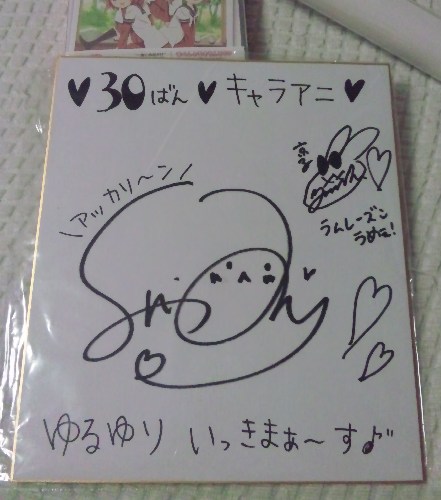 ♥30ばん♥キャラアニ♥
京子
\アッカリ〜ン/
らむレーズン
うめた!
ゆるゆり いっきまぁ〜す♪